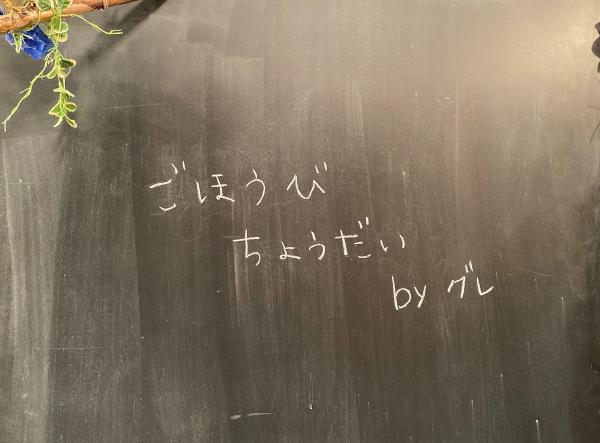 ごほうび
ちょうだい
by グレ